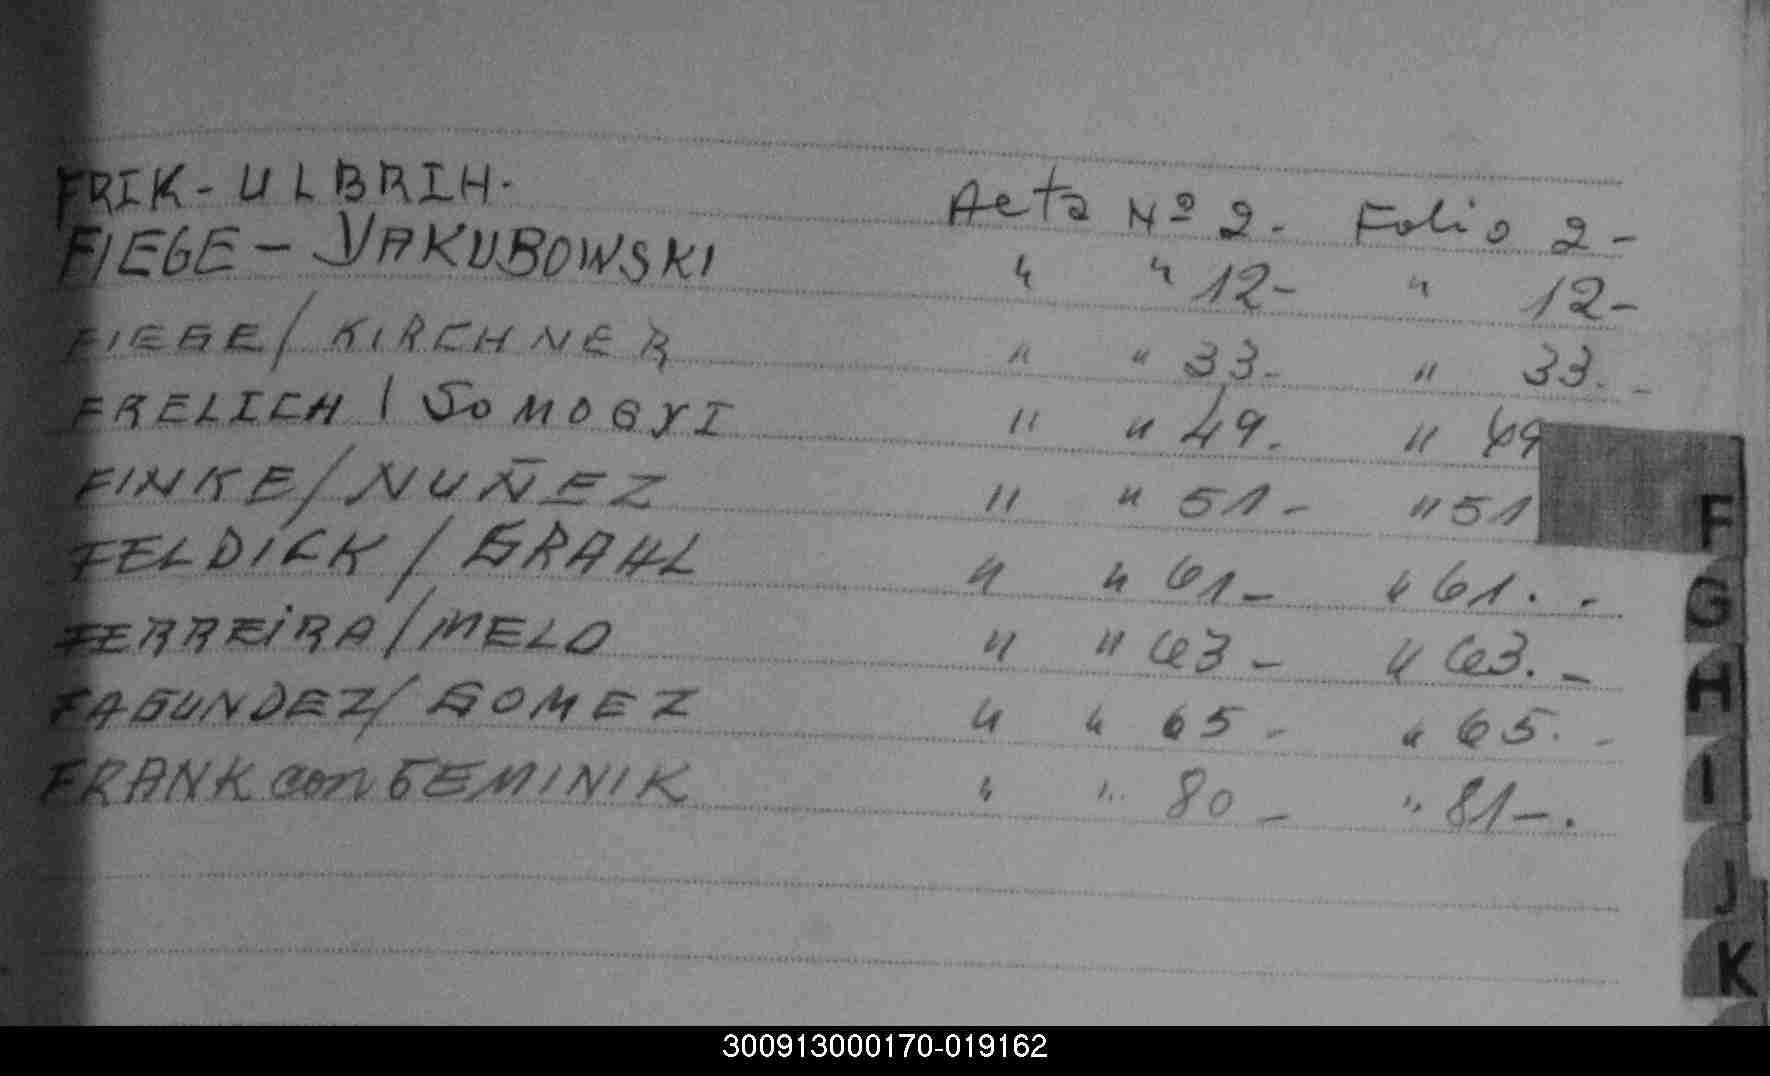 FRIK - ULBRIH. Acta Nº 2. - Folio 2 -
FIEGE - YAKUBOWSKI " " 12 - " 12 -
FIEGE / KIRCHNER " " 33. - " 33. -
FRELICH / SOMOGYI " " 49. " 49
FINKE / NUÑEZ " " 51 - " 51
FELDICK / GRAHL " " 61 - " 61. -
FERREIRA / MELO " " 63 - " 63. -
FAGUNDEZ / GOMEZ " " 65 - " 65. -
FRANK con GEMINIK " " 80 - " 81 -.
F
G
H
I
J
K
300913000170-019162